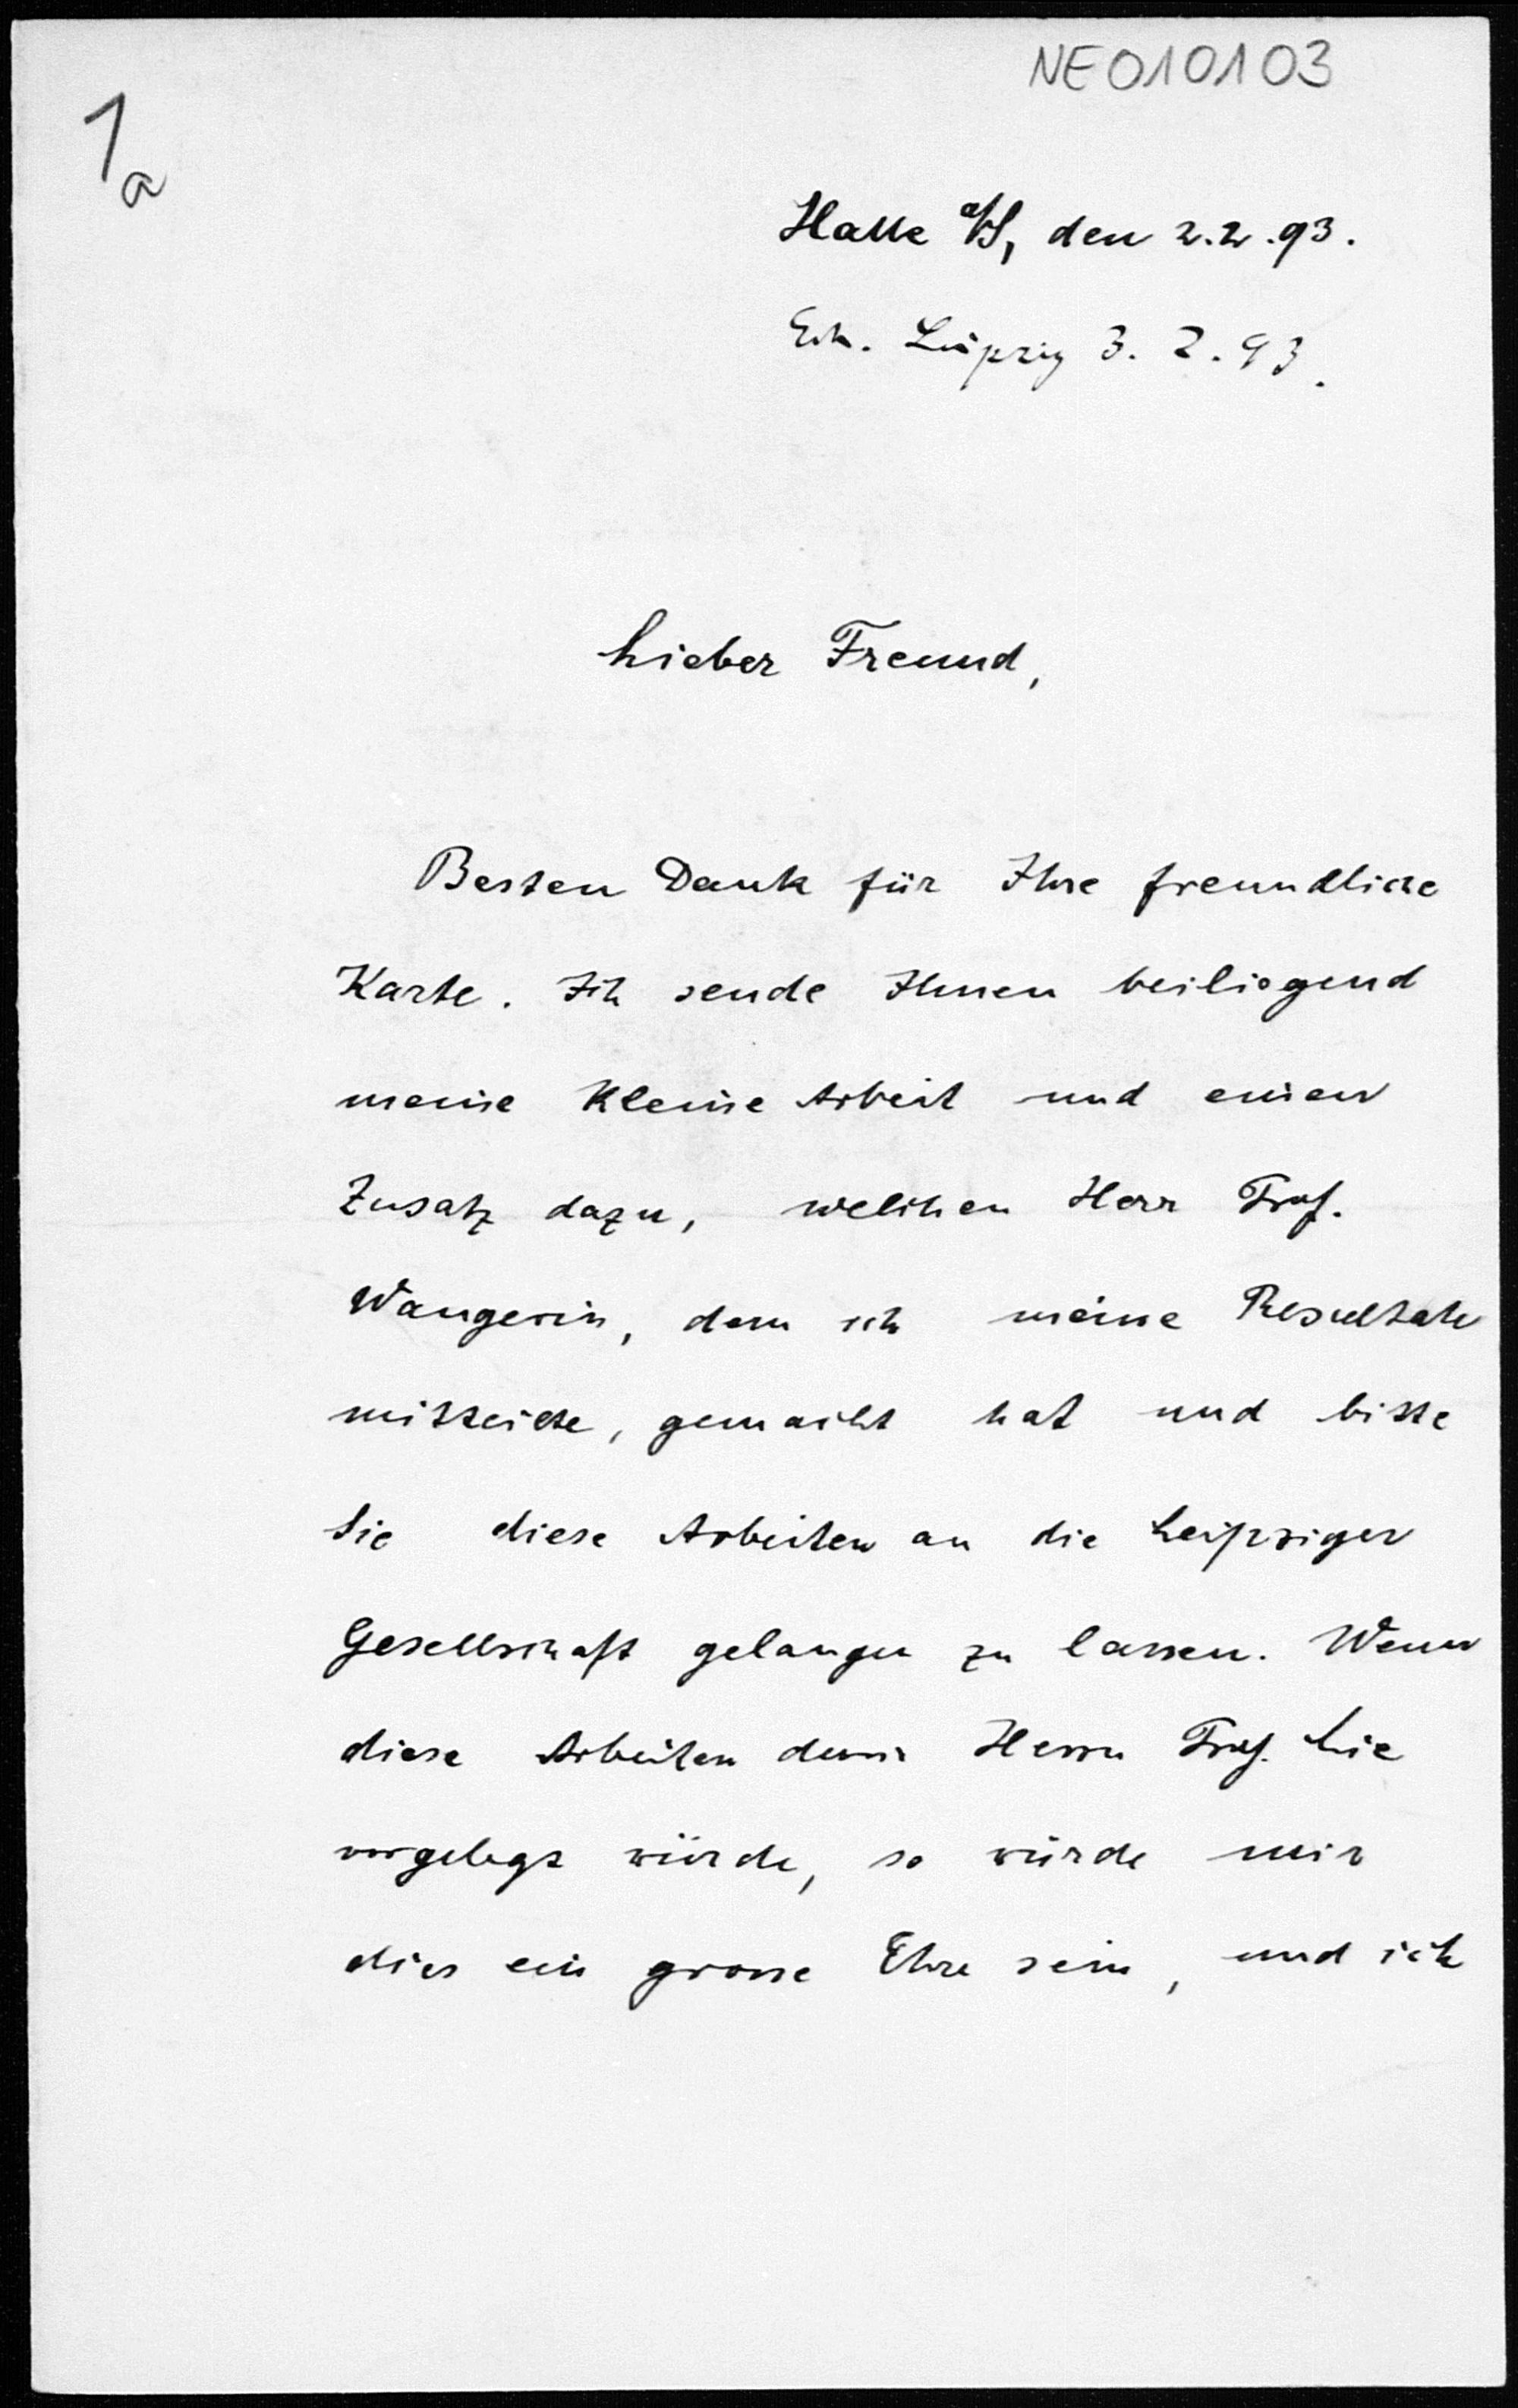 NE010103
1a
Halle a/S, den 2.2.93.
Erh. Leipzig 3.2.93.
Lieber Freund,
Besten Dank für Ihre freundliche
Karte. Ich sende Ihnen beiliegend
meine kleine Arbeit und einen
Zusatz dazu, welchen Herr Prof.
Wangerin, dem ich meine Resultate
mitteilte, gemacht hat und bitte
Sie diese Arbeiten an die Leipziger
Gesellschaft gelangen zu lassen. Wenn
diese Arbeiten dem Herrn Prof. Lie
vorgelegt würde, so würde mir
dies ein grosse Ehre sein, und ich